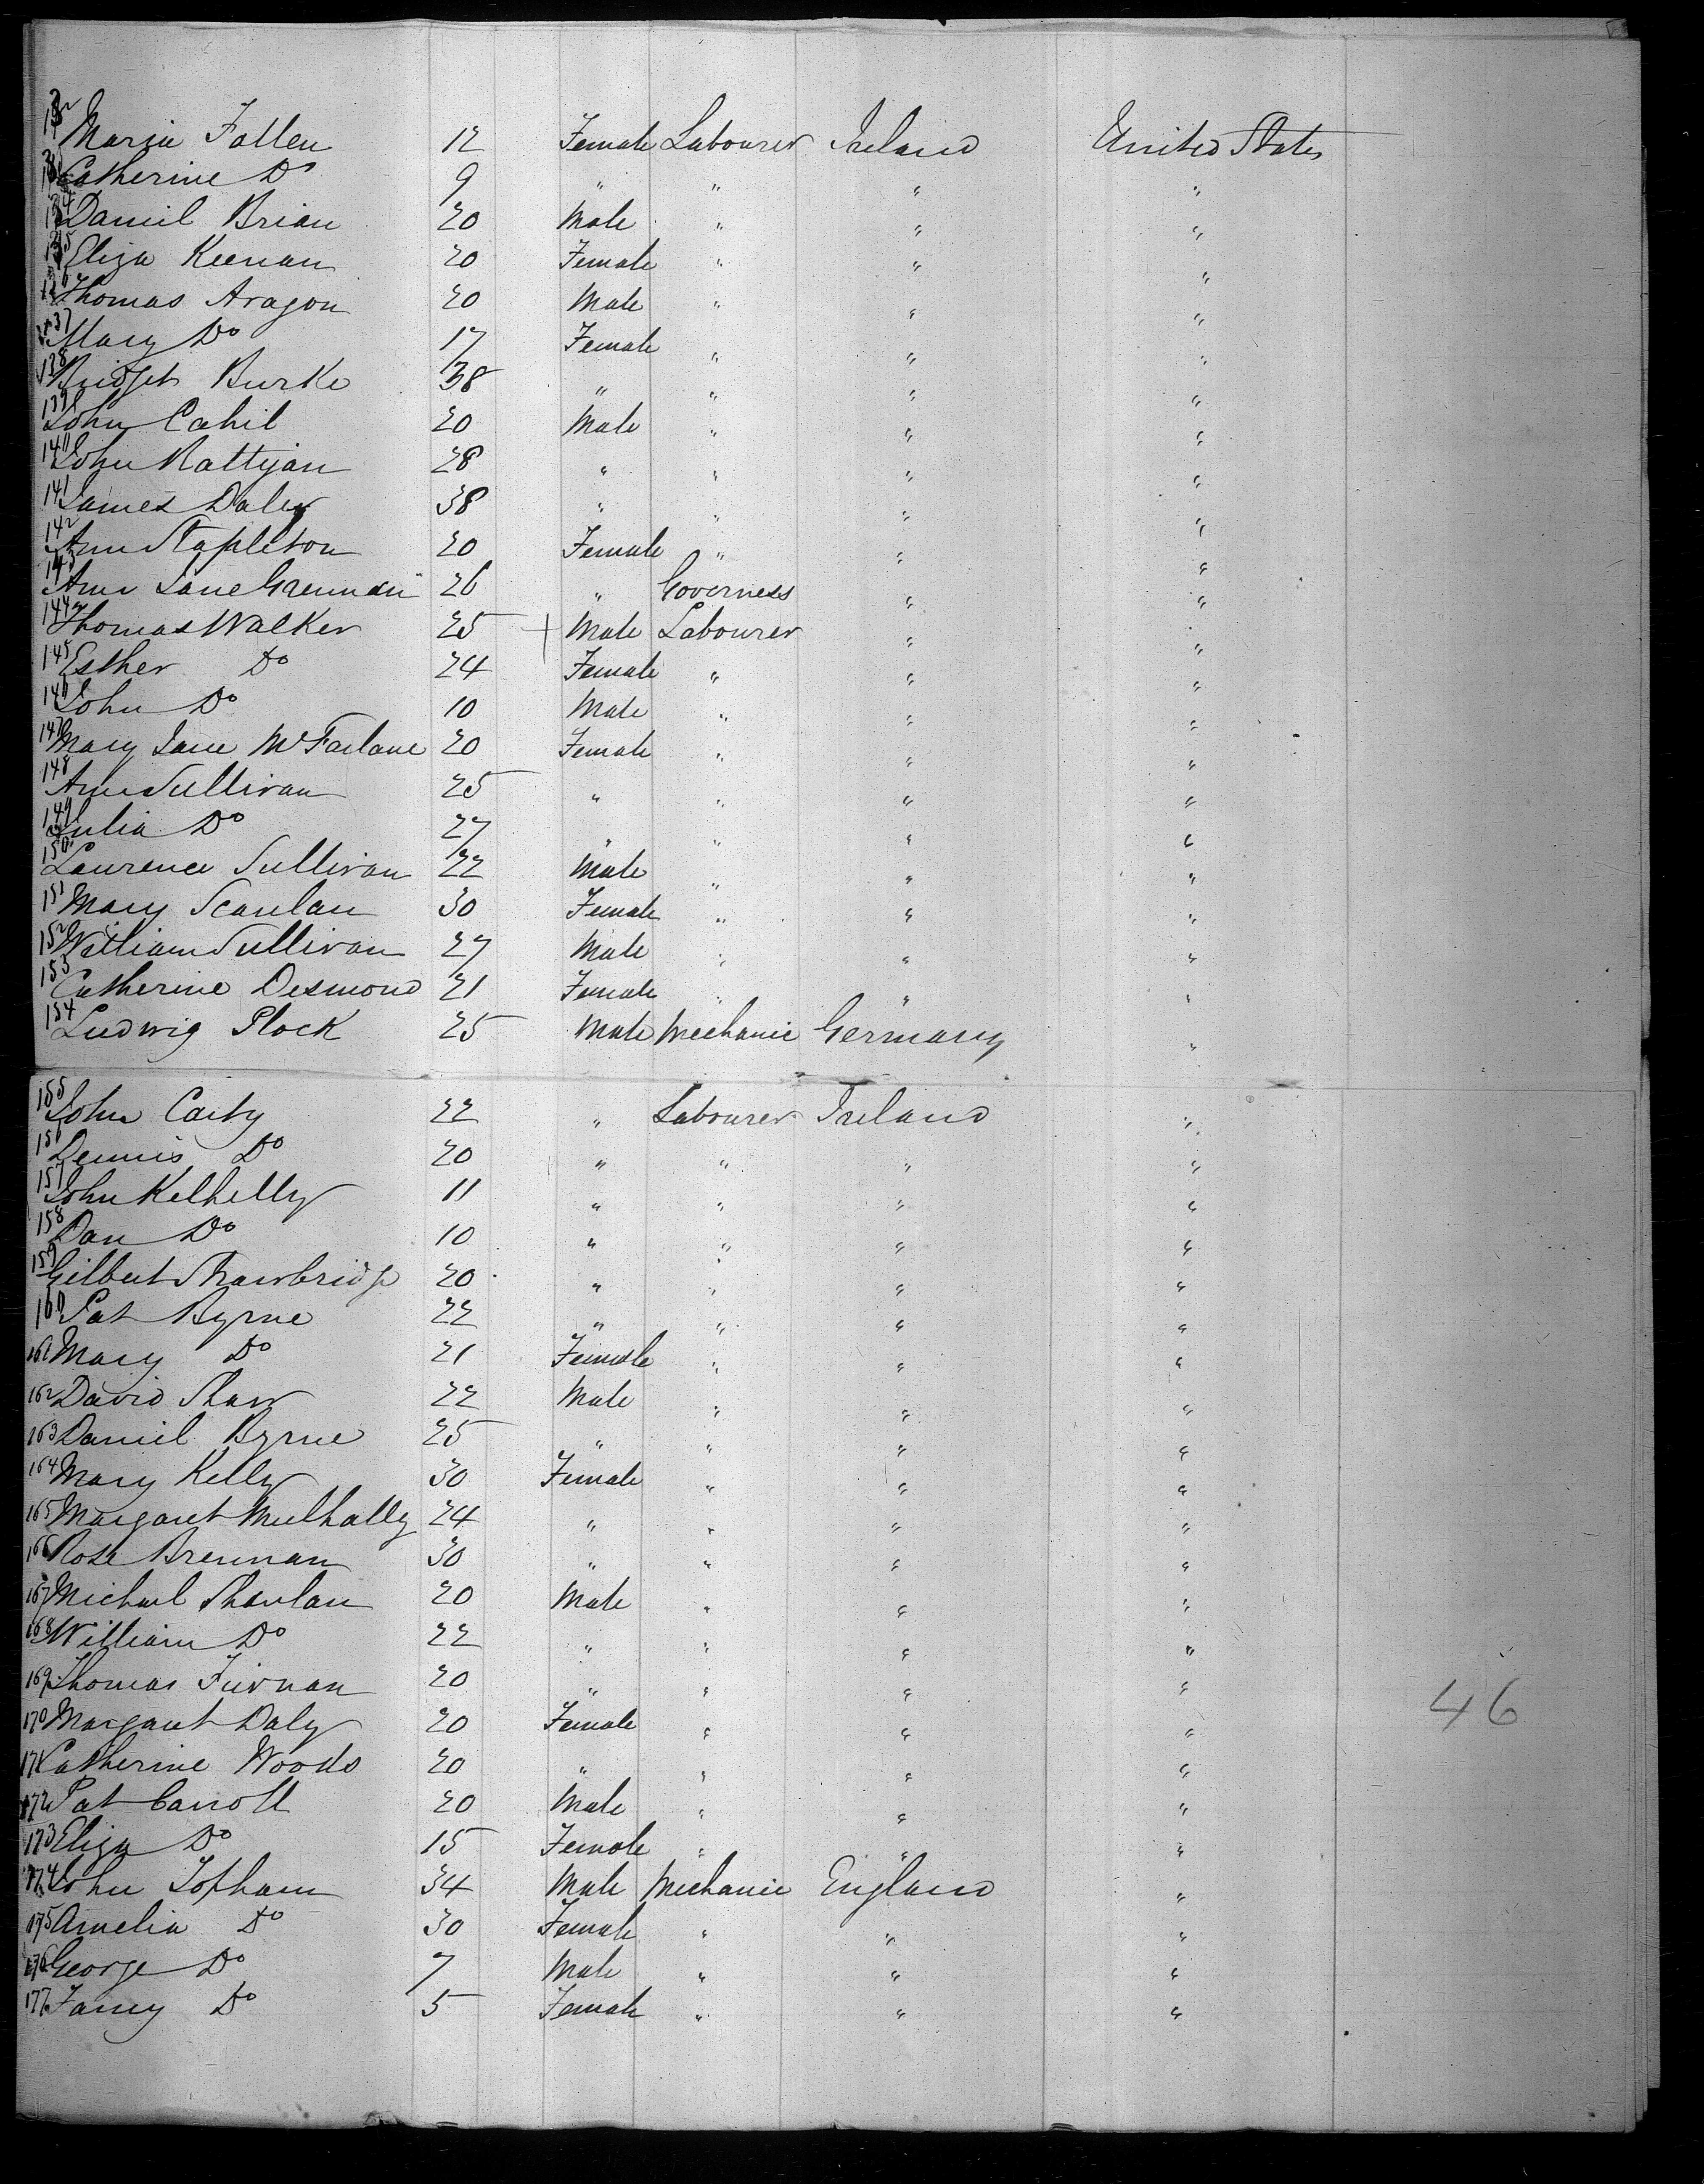 132 Maria Fallen 12 Female Labourer Ireland United States
133 Catherine Do 9 " " " "
134 Daniel Brian 20 Male " " "
135 Eliza Keenan 20 Female " " "
136 Thomas Aragon 20 Male " " "
137 Mary Do 17 Female " " "
138 Bridget Burke 38 " " " "
139 John Cahil 20 Male " " "
140 John Rattijan 28 " " " "
141 James Daley 38 " " " "
142 Ann Stapleton 20 Female " " "
143 Ann Jane Grennan 26 " Governess " "
144 Thomas Walker 25 + Male Labourer " "
145 Esther Do 24 Female " " "
146 John Do 10 Male " " "
147 Mary Jane McFarlane 20 Female " " "
148 Ann Sullivan 25 " " " "
149 Julia Do 27 " " " "
150 Laurence Sullivan 22 Male " " "
151 Mary Scanlan 30 Female " " "
152 William Sullivan 27 Male " " "
153 Catherine Desmond 21 Female " " "
154 Ludwig Plock 25 Male Mechanic Germany "
155 John Carty 22 " Labourer Ireland "
156 Dennis Do 20 " " " "
157 John Kelhelly 11 " " " "
158 Dan Do 10 " " " "
159 Gilbert Strawbridge 20 " " " "
160 Pat Byrne 22 " " " "
161 Mary Do 21 Female " " "
162 David Shaw 22 Male " " "
163 Daniel Byrne 25 " " " "
164 Mary Kelly 30 Female " " "
165 Margaret Mulhally 24 " " " "
166 Rose Brennan 30 " " " "
167 Michael Shanlan 20 Male " " "
168 William Do 22 " " " "
169 Thomas Fiernan 20 " " " "
170 Margaret Daly 20 Female " " "
171 Catherine Woods 20 " " " "
172 Pat Carroll 20 Male " " "
173 Eliza Do 15 Female " " "
174 John Topham 34 Male Mechanic England "
175 Amelia Do 30 Female " " "
176 George Do 7 Male " " "
177 Fanny Do 5 Female " " "
46